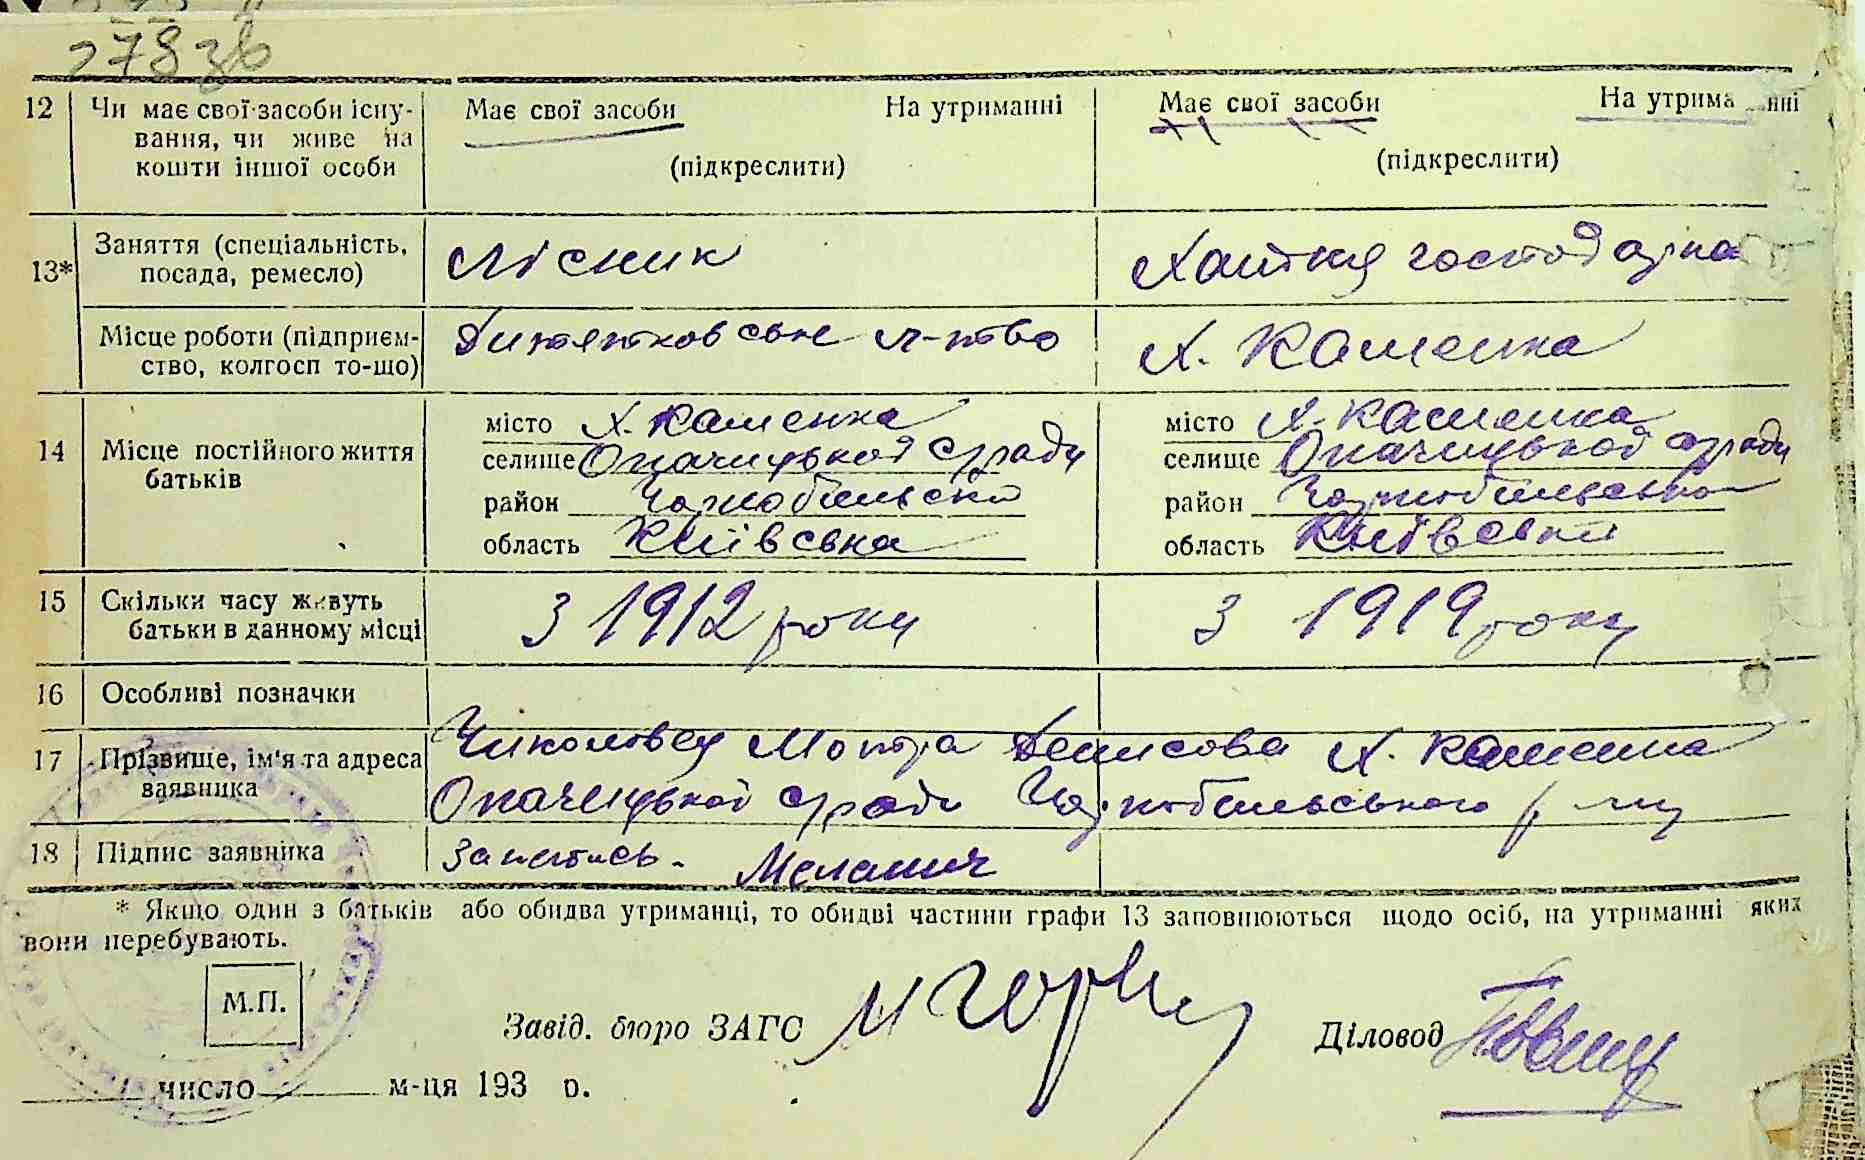 278 зв
12 Чи має свої засоби існу- Має свої засоби На утриманні Має свої засоби На утрима нні
вання, чи живе на
кошти іншої особи (підкреслити) (підкреслити)
13* Заняття (спеціальність, Лісник Хатня господарка
посада, ремесло)
Місце роботи (підприєм- Дитятковське л-тво х. Каменка
ство, колгосп то-що)
14 Місце постійного життя місто х. Каменка місто х. Каменка
батьків селище Опачицької с/ради селище Опачицької с/ради
район Чорнобильськ район Чорнобильська
область Київська область Київська
15 Скільки часу живуть З 1912 року З 1919 року
батьки в данному місці
16 Особливі позначки
17 Прізвище, ім'я та адреса Мотра Денисова х. Каменка
заявника Опачицької с/ради Чорнобильського р-ну
18 Підпис заявника
* Якщо один з батьків або обидва утриманці, то обидві частини графи 13 заповнюються щодо осіб, на утриманні яких
вони перебувають.
М.П.
Завід. бюро ЗАГС Діловод
число м-ця 193 р.